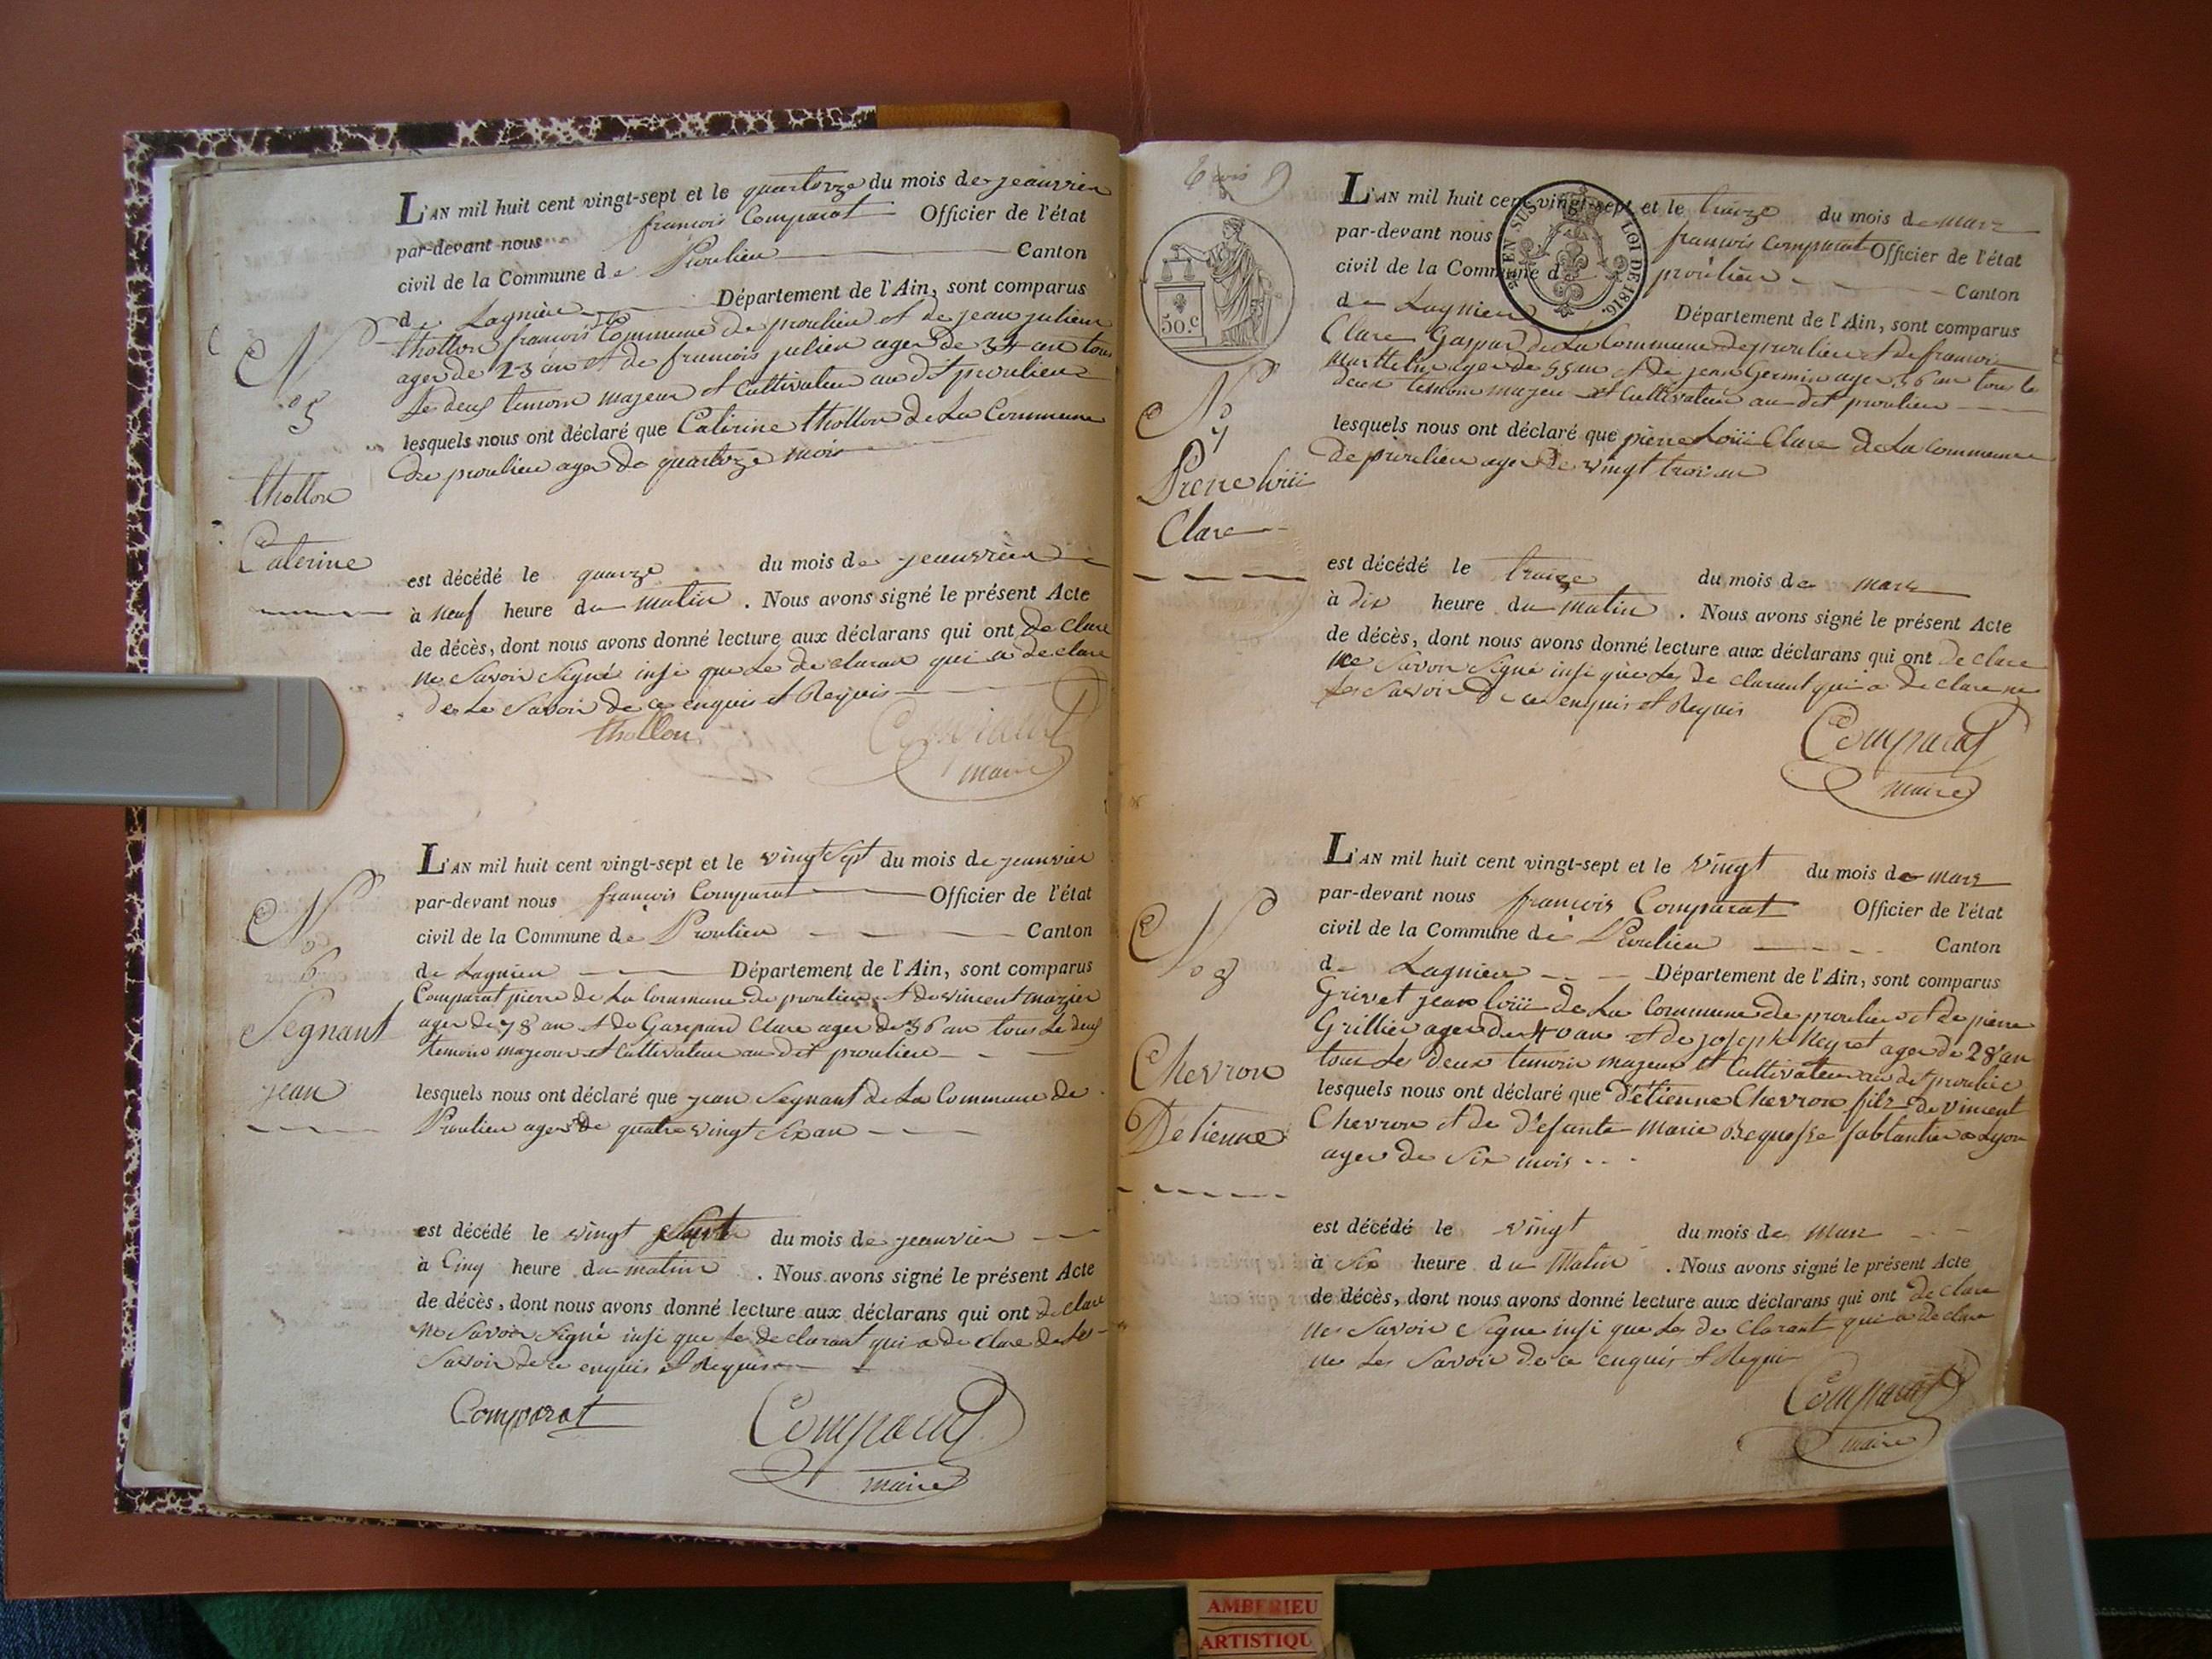 L'AN mil huit cent vingt-sept et le quartorze du mois de jeanvier
par-devant nous francois Comparat Officier de l'état
civil de la Commune de Proulieu Canton
de Lagnieu Département de l'Ain, sont comparus
thollon francois Commune de proulieu et de jean julien
ager de 23 an et de francois julien ager de 34 an tous
Le deuf temoin majeur et Cultivateur au dit proulieu
lesquels nous ont déclaré que Caterine thollon de La Commune
de proulieu ager de quartorze mois
N° 5
thollon
Caterine
est décédé le quarze du mois de jeanvrier
à neuf heure du matin . Nous avons signé le présent Acte
de décès, dont nous avons donné lecture aux déclarans qui ont De Clare
ne Savoir Signé insi que Le de claran qui a de clare
de Le Savoir de ce enquis et Requis
thollon Comparat
maire
L'AN mil huit cent vingt-sept et le vingt Sept du mois de jeanvier
par-devant nous francois Comparat Officier de l'état
civil de la Commune de Proulieu Canton
de Lagnieu Département de l'Ain, sont comparus
Comparat pierre de La Commune de proulieu et de vincent mazier
ager de 78 an et de Gasepard Clare ager de 36 an tous Le deuf
temoin majeour et Cultivateur au dit proulieu
lesquels nous ont déclaré que jean Segnant de La Commune de
Proulieu ager de quatre vingt Six an
N° 6
Segnant
jean
est décédé le vingt du mois de jeanvier
à Cinq heure du matin . Nous avons signé le présent Acte
de décès, dont nous avons donné lecture aux déclarans qui ont de clare
ne Savoir Signé insi que Le de clarant qui a de Clare de Le
Savoir de ce enquis et Requis
Comparat Comparat
maire
50.C
EN SUS LOI DE 1816.
L'AN mil huit cent vingt-sept et le traize du mois de mars
par-devant nous francois Comparat Officier de l'état
civil de la Commune de proulieu Canton
de Lagnieu Département de l'Ain, sont comparus
Clare Gaspar de La Commune de proulieu et de francois
ager de 55 an et de jean Germin ager 36 an tous le
deux temoin majeu et Cultivateur au dit proulieu
lesquels nous ont déclaré que pierre Loüii Clare de La Commune
de proulieu ager de vingt trois an
N° 7
Pierre loüii
Clare
est décédé le traize du mois de mars
à dix heure du matin . Nous avons signé le présent Acte
de décès, dont nous avons donné lecture aux déclarans qui ont de clare
ne Savoir Signé insi que Les de clarant qui a de clare ne
Les Savoir De ce enquis et Requis
Comparat
maire
L'AN mil huit cent vingt-sept et le vingt du mois de mars
par-devant nous francois Comparat Officier de l'état
civil de la Commune de Proulieu Canton
de Lagnieu Département de l'Ain, sont comparus
Grivet jean loüii de La Commune de proulieu et de pierre
Grillier ager de 40 an et de joseph Neyret ager de 28 an
tous Les deux temoin majeur et Cultivateur au dit proulieu
lesquels nous ont déclaré que Detienne Chevron filz de vincent
Chevron et de d'efante marie a Lyon
ager de Six mois
N° 8
Chevron
Detienne
est décédé le vingt du mois de mars
à Six heure du Matin . Nous avons signé le présent Acte
de décès, dont nous avons donné lecture aux déclarans qui ont de clare
ne Savoir Signe insi que Les de Clarant qui a de clare
ne Les Savoir de ce enquis et Requis
Comparat
maire
AMBERIEU
ARTISTIQU